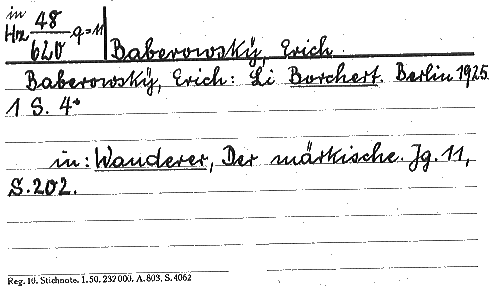 in
Hm 48/620 q=11 Baberowský, Erich
Baberowský, Erich: Li Borchert. Berlin 1925.
1 S. 4°
in: Wanderer, Der märkische. Jg. 11,
S. 202.
Reg. 10. Stichnote. 1. 50. 232 000. A. 803. S. 4062